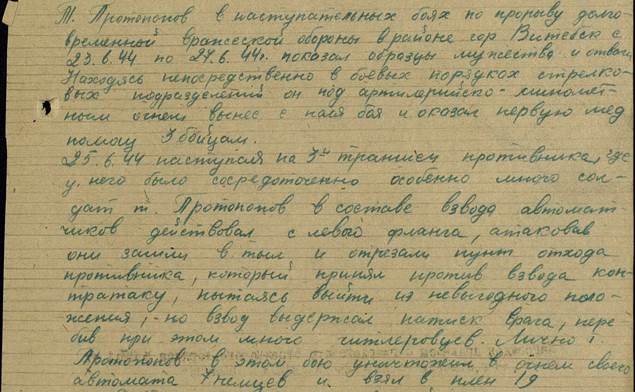 Т. Протопопов в наступательных боях по прорыву долго-
временной вражеской обороны в районе гор Витебск с
23.6.44 по 27.6.44г. показал образцы мужества и отваги
Находясь непосредственно в боевых порядках стрелко-
вых подразделений он под артилерийско-миномет-
ным огнем вынес с поля боя и оказал первую мед
помощ 3 бойцам.
25.6.44 наступая на 3ю траншею противника, где
у него было сосредоточенно особенно много сол-
дат т. Протопопов в составе взвода автомат
чиков действовал с левого фланга, атаковав
они зашли в тыл и отрезали пункт отхода
противника, который принял против взвода кон-
тратаку, пытаясь выйти из невыгодного поло-
жения, но взвод выдержал натиск врага, пере
бив при этом много гитлеровцев. Лично т.
Протопопов в этом бою уничтожил огнем своего
автомата 7 немцев и взял в плен